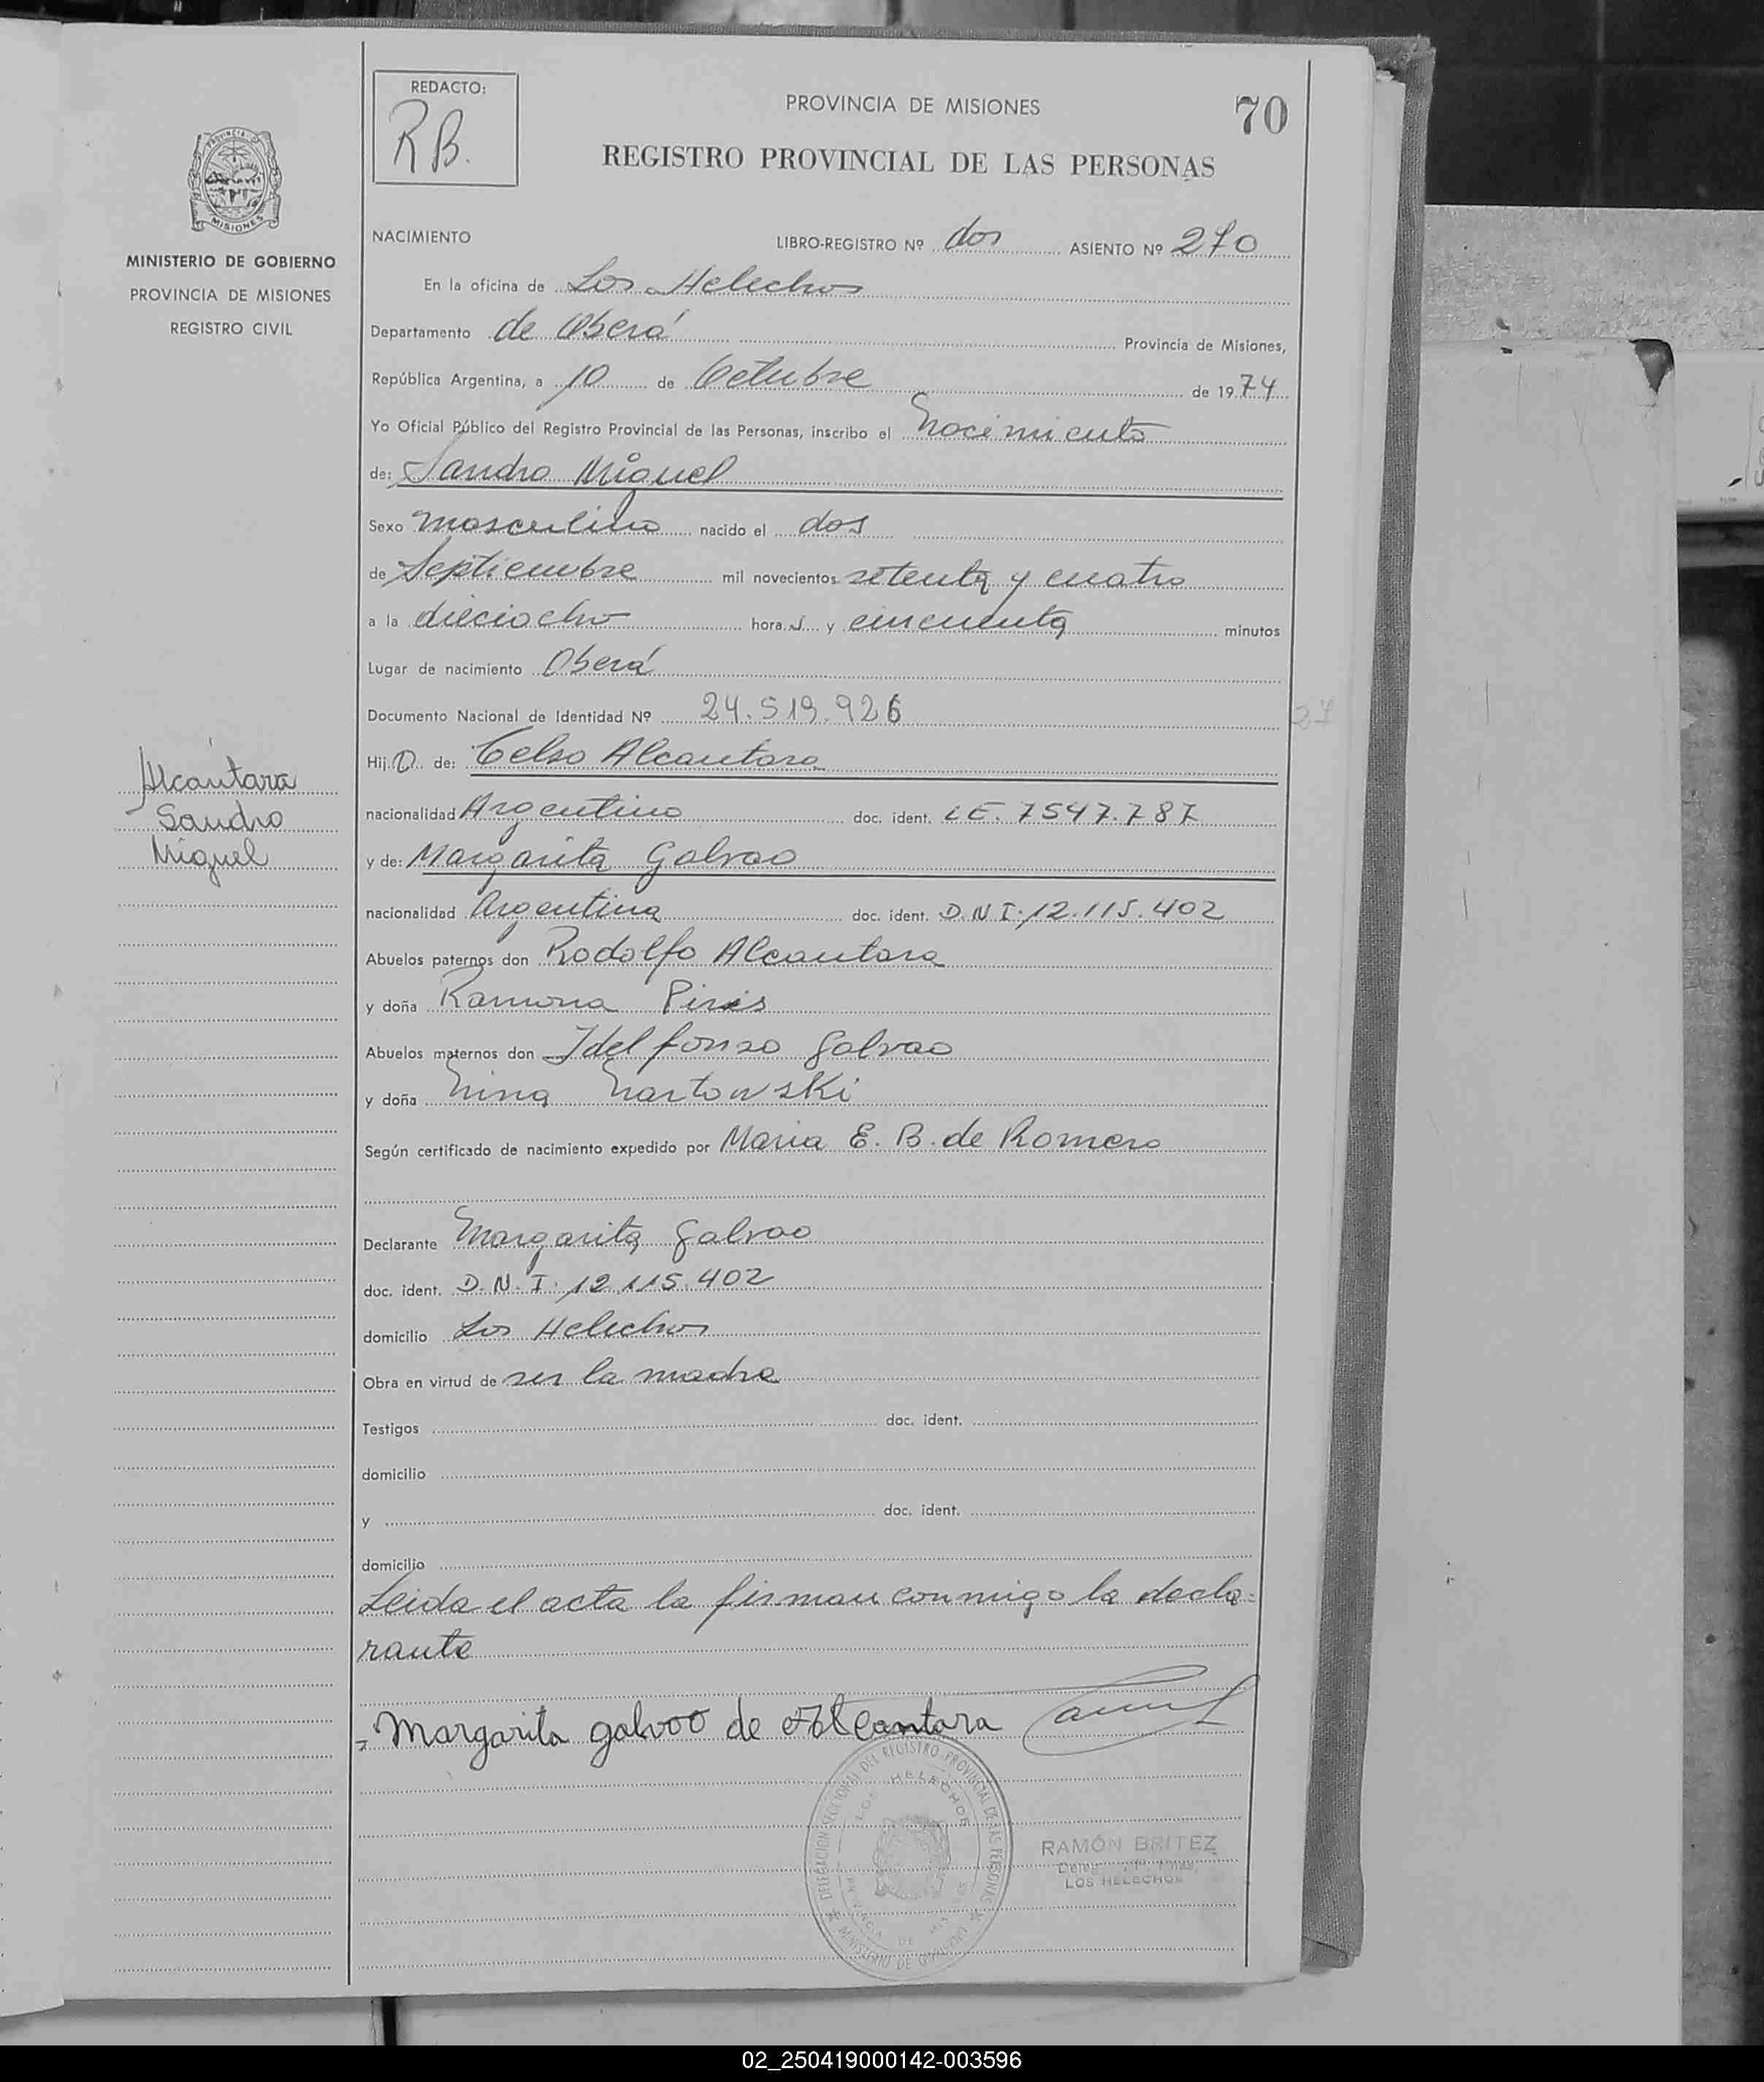 REDACTO:
RB.
PROVINCIA DE MISIONES
70
REGISTRO PROVINCIAL DE LAS PERSONAS
PROVINCIA DE
MISIONES
MINISTERIO DE GOBIERNO
PROVINCIA DE MISIONES
REGISTRO CIVIL
NACIMIENTO LIBRO-REGISTRO Nº dos ASIENTO Nº 270
En la oficina de Los Helechos
Departamento de Oberá Provincia de Misiones,
República Argentina, a 10 de Octubre de 1974
Yo Oficial Público del Registro Provincial de las Personas, inscribo el Nacimiento
de: Sandro Miguel
Sexo masculino nacido el dos
de Septiembre mil novecientos setenta y cuatro
a la dieciocho horas y cincuenta minutos
Lugar de nacimiento Oberá
Documento Nacional de Identidad Nº 24.519.926
27
Hijo de: Celso Alcantara
Alcantara
Sandro
Miguel
nacionalidad Argentino doc. ident. LE. 7547.787
y de: Margarita Galvao
nacionalidad Argentina doc. ident. D.N.I. 12.115.402
Abuelos paternos don Rodolfo Alcantara
y doña Ramona Piris
Abuelos maternos don Idelfonso Galvao
y doña Nina Nartowski
Según certificado de nacimiento expedido por Maria E. B. de Romero
Declarante Margarita Galvao
doc. ident. D.N.I. 12.115.402
domicilio Los Helechos
Obra en virtud de ser la madre
Testigos doc. ident.
domicilio
y doc. ident.
domicilio
Leida el acta la firman conmigo la decla-
rante
Margarita galvao de Alcantara
DELEGACION SECCIONAL DEL REGISTRO PROVINCIAL DE LAS PERSONAS
LOS HELECHOS
PROVINCIA DE MISIONES
MINISTERIO DE GOBIERNO
RAMÓN BRITEZ
LOS HELECHOS
02_250419000142-003596